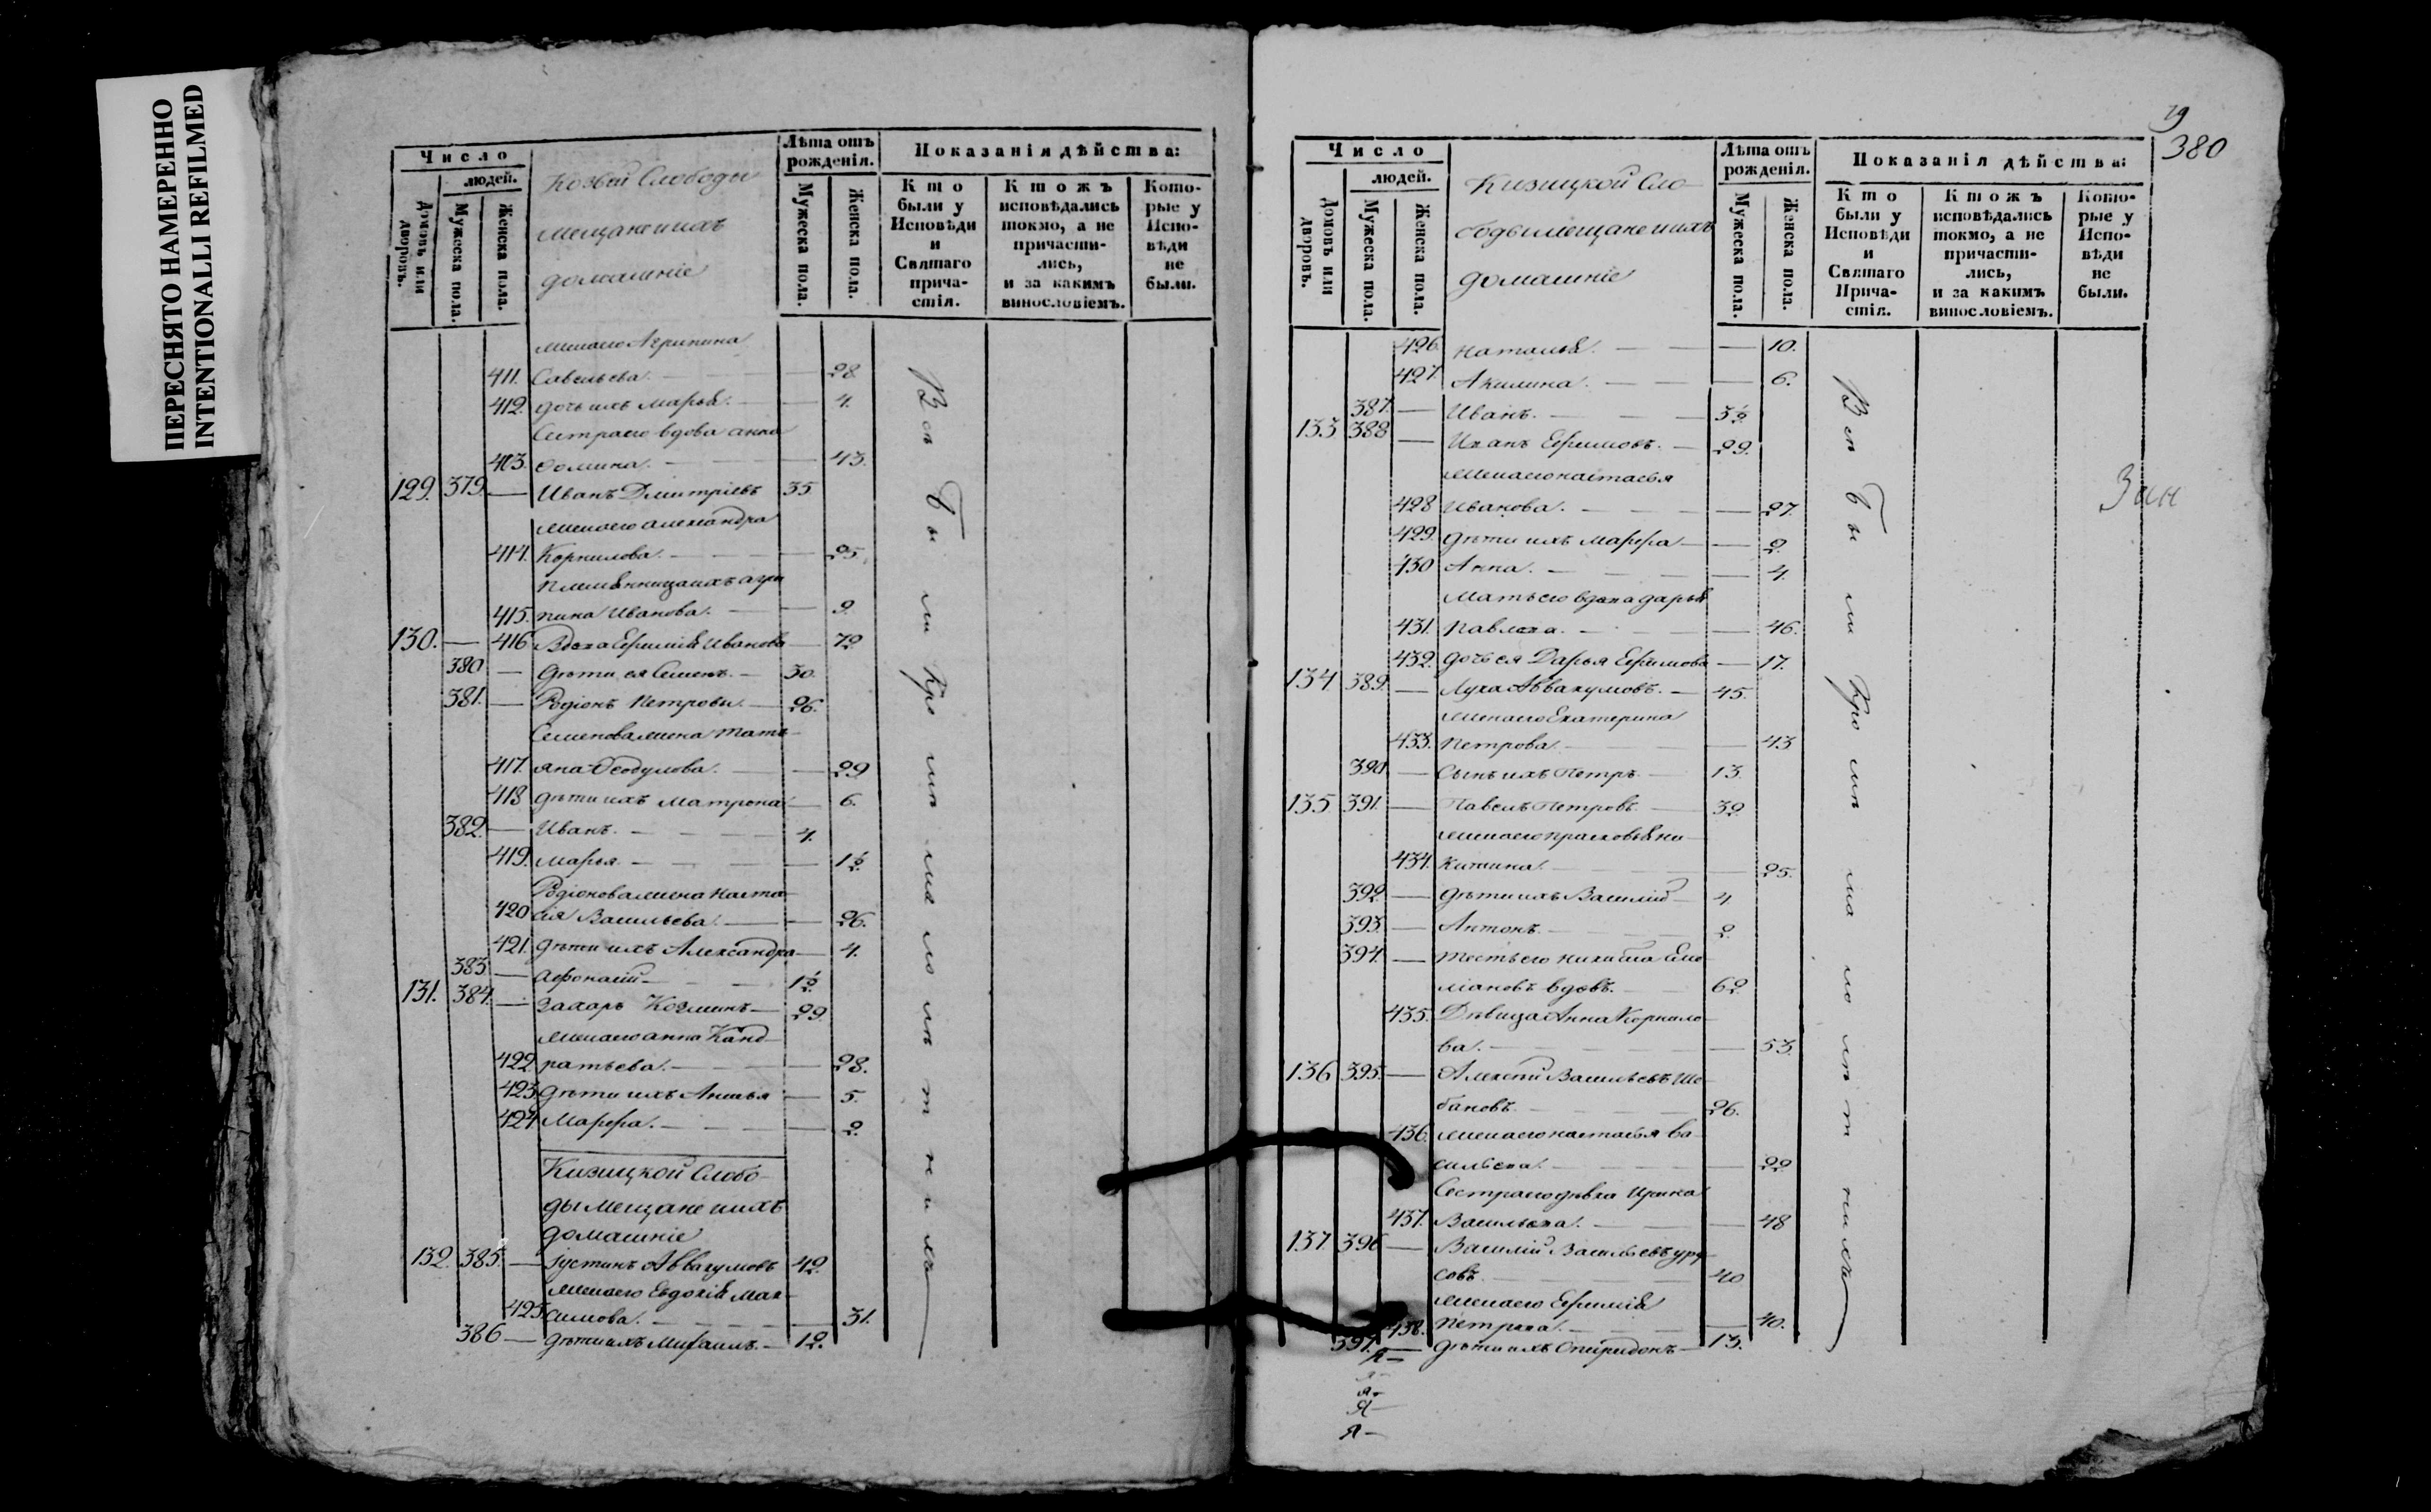 ПЕРЕСНЯТО НАМЕРЕННО
INTENTIONALLI REFILMED
Число
людей.
Домовъ или дворовъ.
Мужеска пола.
Женска пола.
Козьей Слободы
мещане и ихъ
домашніе
Лѣта отъ рожденія.
Мужеска пола.
Женска пола.
Показанія дѣйства:
Кто были у Исповѣди и Святаго причастія.
Ктожъ исповѣдались токмо, а не причастились, и за какимъ винословіемъ.
Которые у Исповѣди не были.
жена его Агрипина
411. Савельева. — — 28
412. дочь ихъ Марья. — — 4.
Сестра его вдова анна
413. Фомина. — — 43.
129. 379. — Иванъ Дмитріевъ 35.
жена его александра
414. Корнилова. — — 25.
племянница ихъ агри
415. пина Иванова. — — 9.
130. — 416 Вдова Ефимія Иванова — 72
380 — дѣти ея Семенъ. — 30.
381. — Родіонъ Петровы. — 26.
Семенова жена Тать-
417. яна Феодулова. — — 29
418 дѣти ихъ Матрона — 6.
382. — Иванъ. — 4.
419. Марья. — — 1½
Родіонова жена Наста-
420 сія Васильева. — — 26.
421. дѣти ихъ Александра — 4.
383. — Афонасій — 1½
131. 384. — Захаръ Козминъ — 29.
жена его анна Канд-
422. ратьева. — — 28.
423. дѣти ихъ Анисья — 5.
424. Марфа. — — 2.
Кизицкой Слобо-
ды мещане и ихъ
домашніе
132. 385. — Іустинъ Аввакумовъ 42.
жена его Евдокія Мак-
425. симова. — — 31.
386 — дѣти ихъ Михаилъ. — 12.
Всѣ были кромѣ малолѣтнихъ
19
380
Число
людей.
Домовъ или дворовъ.
Мужеска пола.
Женска пола.
Кизицкой Сло-
боды мещане и ихъ
домашніе
Лѣта отъ рожденія.
Мужеска пола.
Женска пола.
Показанія дѣйства:
Кто были у Исповѣди и Святаго Причастія.
Ктожъ исповѣдались токмо, а не причастились, и за какимъ винословіемъ.
Которые у Исповѣди не были.
426. Наталья. — — 10.
427. Акилина. — — 6.
387. — Иванъ. — 3½
133 388 — Иванъ Ефимовъ. — 29.
жена его настасья
428 Иванова. — — 27.
429. дѣти ихъ Марфа — — 2.
430 Анна. — — 4.
Мать его вдова дарья
431. Павлова. — — 46.
432. дочь ея Дарья Ефимова — 17.
134. 389. — Лука Аввакумовъ. — 45.
жена его Екатерина
433. Петрова. — — 43
390. — Сынъ ихъ Петръ — 13.
135 391. — Павелъ Петровъ — 32.
жена его прасковья ни-
434. китина. — — 25.
392. — дѣти ихъ Василій — 4
393. — Антонъ. — 2.
394. — тесть его никита Еме-
ліановъ вдовъ. — 62.
435. Дѣвица Анна Корнило-
ва. — — 53.
136 395. — Алексѣй Васильевъ Ше-
бановъ. — 26.
436. жена его настасья ва-
сильева. — — 22
Сестра его дѣвка Ирина
437. Васильева. — — 48
137 396 — Василій Васильевъ уру-
совъ. — 40
жена его Ефимія
438. Петрова. — — 40.
397. — дѣти ихъ Спиридонъ — 13.
Всѣ были кромѣ малолѣтнихъ